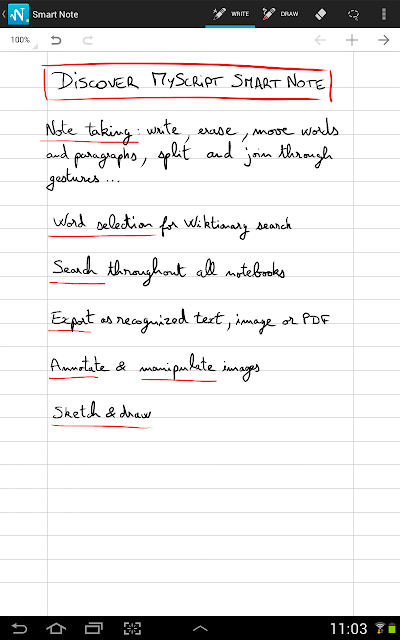 Smart Note
WRITE
DRAW
100%
DISCOVER MYSCRIPT SMART NOTE
Note taking: write, erase, move words
and paragraphs, split and join through
gestures...
Word selection for Wiktionary search
Search throughout all notebooks
Export as recognized text, image or PDF
Annotate & manipulate images
Sketch & draw
11:03